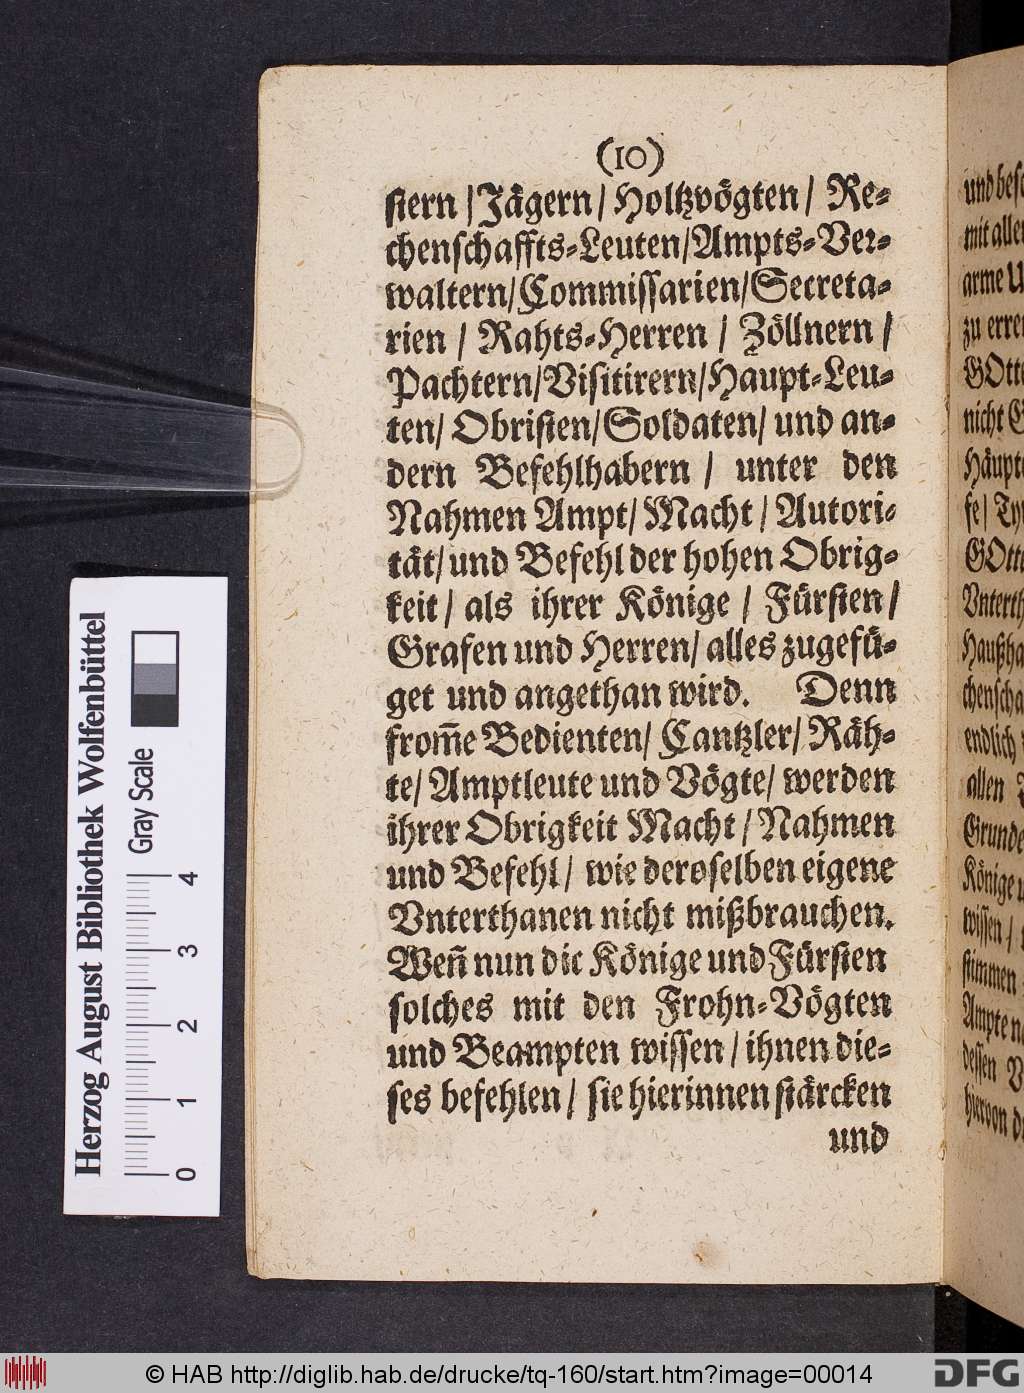 (10)
stern / Jägern / Holtzvögten / Re-
chenschaffts-Leuten/Ampts-Ver-
waltern/Commissarien/Secreta-
rien / Rahts-Herren / Zöllnern /
Pachtern/Visitirern/Haupt-Leu-
ten/ Obristen/Soldaten/ und an-
dern Befehlhabern / unter den
Nahmen Ampt/ Macht / Autori-
tät/ und Befehl der hohen Obrig-
keit / als ihrer Könige / Fürsten/
Grafen und Herren/ alles zugefü-
get und angethan wird. Denn
from̄e Bedienten/ Cantzler/ Räh-
te/ Amptleute und Vögte/ werden
ihrer Obrigkeit Macht / Nahmen
und Befehl / wie deroselben eigene
Vnterthanen nicht mißbrauchen.
Wen̄ nun die Könige und Fürsten
solches mit den Frohn-Vögten
und Beampten wissen / ihnen die-
ses befehlen / sie hierinnen stärcken
und
mit
arme
GOtt
nicht
GOtt
endlich
allen
Könige
wissen /
stimmen
Ampte
dessen
hiervon
Herzog August Bibliothek Wolfenbüttel
Gray Scale
0 1 2 3 4
© HAB http://diglib.hab.de/drucke/tq-160/start.htm?image=00014
DFG